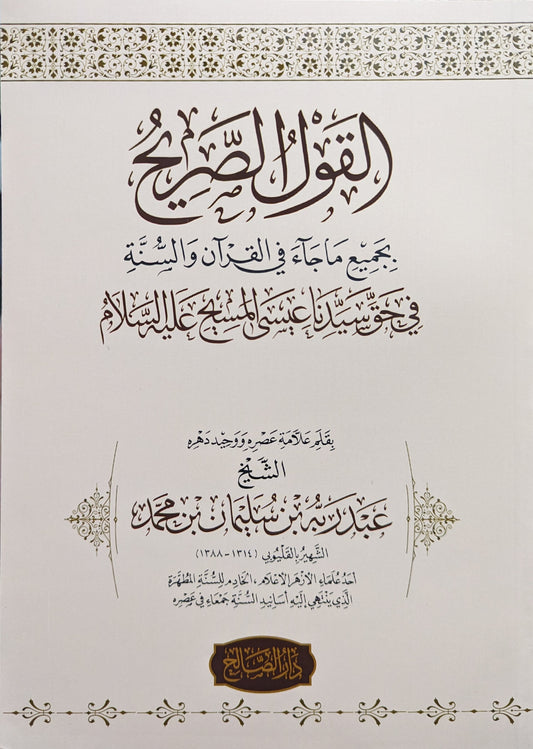 القَوْلُ الصَّرِيحُ
بِجَمِيعِ مَا جَآءَ فِي القُرْآنِ وَالسُّنَّةِ
فِي حَقِّ سَيِّدِنَا عِيسَى المَسِيحِ عَلَيْهِ السَّلَامُ
بِقَلَمِ عَلَّامَةِ عَصْرِهِ وَوَحِيدِ دَهْرِهِ
الشَّيْخ
عَبْدِ رَبِّهُ بْنِ سُلَيْمَانَ بْنِ مُحَمَّد
الشَّهِيرُ بِالقَلْيُوبِي (١٣١٤-١٣٨٨)
أَحَدُ عُلَمَاءِ الأَزْهَرِ الأَعْلَامِ، الخَادِمِ لِلسُّنَّةِ المُطَهَّرَةِ
الَّذِي يَنْتَهِي إِلَيْهِ أَسَانِيدُ السُّنَّةِ جَمْعَاءَ فِي عَصْرِهِ
دَارُ الصَّالِح